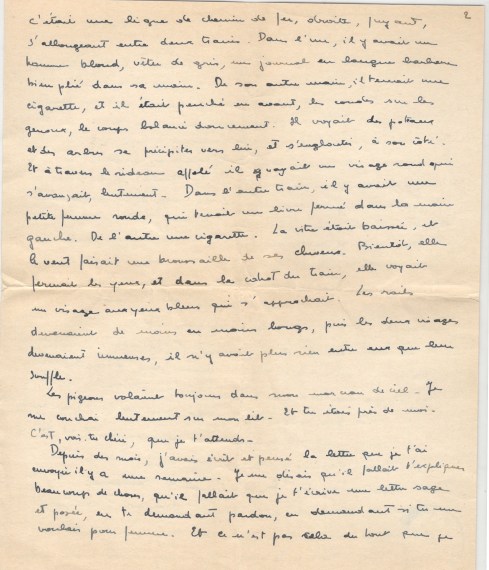 2
c'était une ligne de chemin de fer, droite, fuyant,
s'allongeant entre deux trains. Dans l'un, il y avait un
homme blond, vêtu de gris, un journal en langue barbare
bien plié dans sa main. De son autre main, il tenait une
cigarette, et il était penché en avant, les coudes sur les
genoux, le corps balancé doucement. Il voyait des poteaux
et des arbres se précipiter vers lui, et s'engloutir, à son côté.
Et à travers le rideau affolé il voyait un visage rond qui
s'avançait, lentement. Dans l'autre train, il y avait une
petite femme ronde, qui tenait un livre fermé dans la main
gauche. De l'autre une cigarette. La vitre était baissée, et
le vent faisait une broussaille de ses cheveux. Bientôt, elle
fermait les yeux, et dans le cahot du train, elle voyait
un visage aux yeux bleus qui s'approchait. Les rails
devenaient de moins en moins longs, puis les deux visages
devenaient immenses, il n'y avait plus rien entre eux que leur
souffle.
Les pigeons volaient toujours dans mon morceau de ciel. Je
me couchai lentement sur mon lit. Et tu étais près de moi.
C'est, vois-tu chéri, que je t'attends.
Depuis des mois, j'avais écrit et pensé la lettre que je t'ai
envoyée il y a une semaine. Je me disais qu'il fallait t'expliquer
beaucoup de choses, qu'il fallait que je t'écrive une lettre sage
et posée, en te demandant pardon, en demandant si tu me
voulais pour femme. Et ce n'est pas cela du tout que je